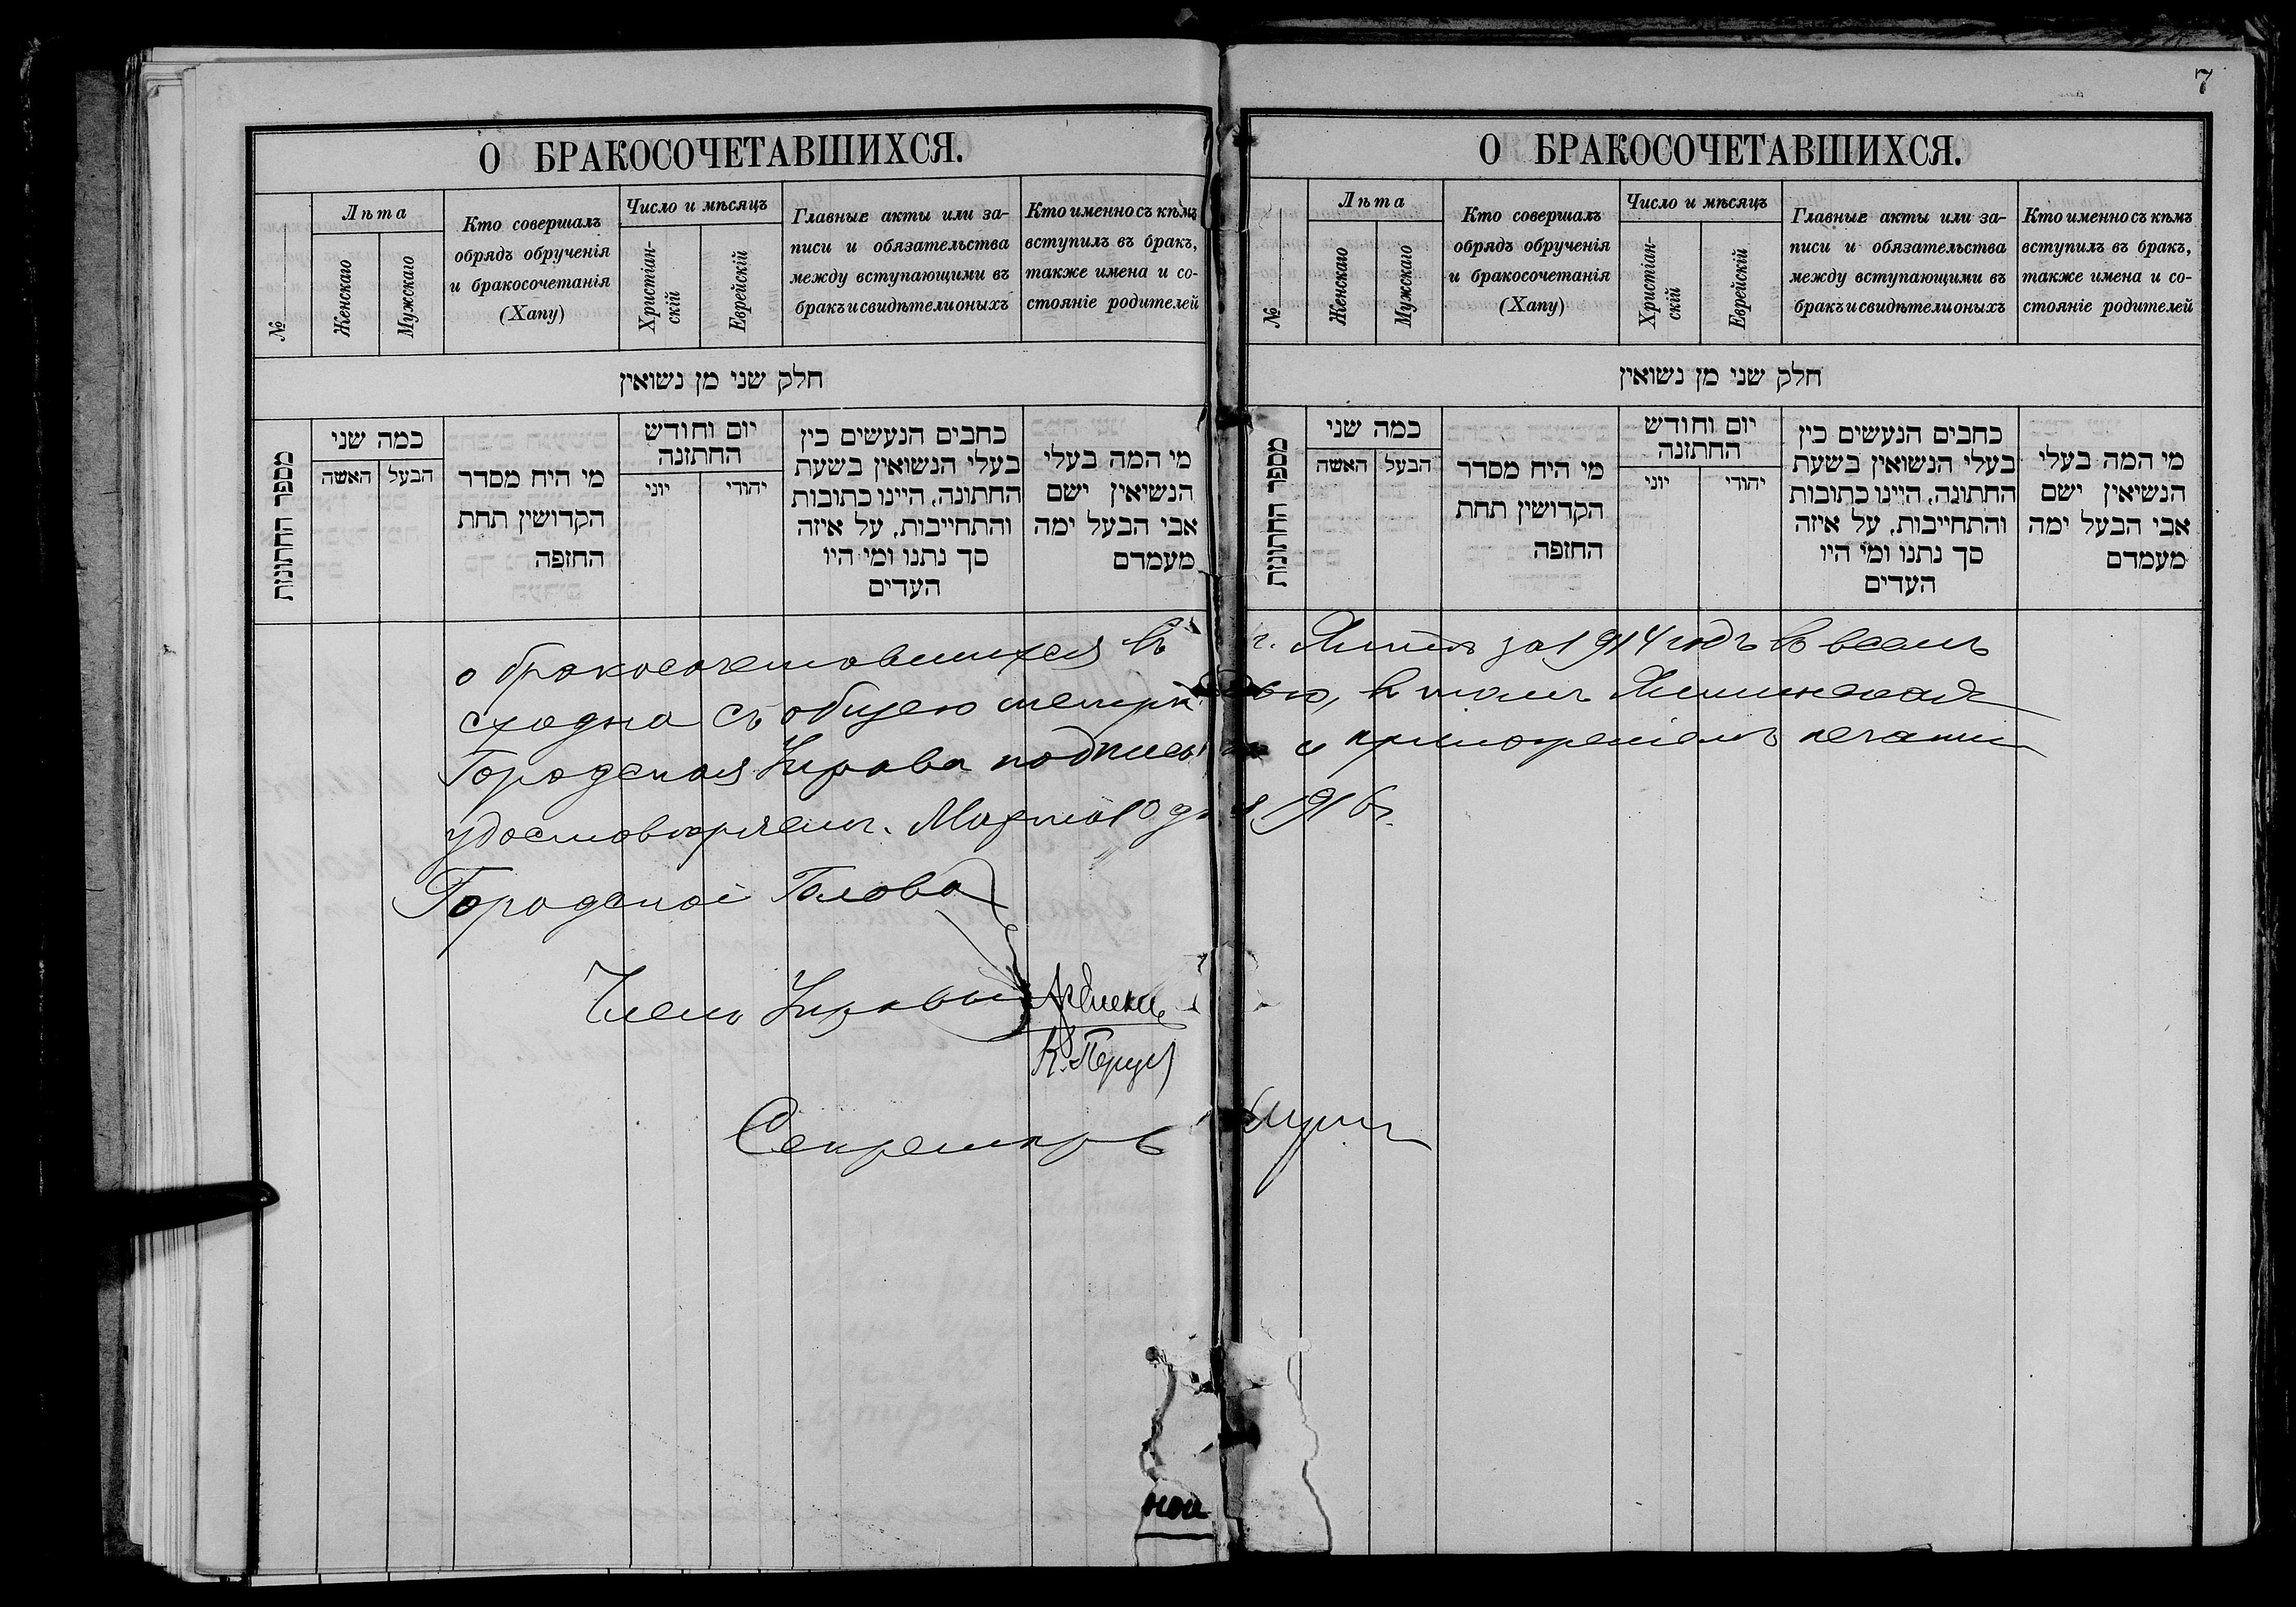 7
О БРАКОСОЧЕТАВШИХСЯ.
№
Лѣта
Женскаго
Мужскаго
Кто совершалъ
обрядъ обрученія
и бракосочетанія
(Хапу)
Число и мѣсяцъ
Христіан-
скій
Еврейскій
Главные акты или за-
писи и обязательства
между вступающими въ
бракъ и свидѣтели оныхъ
Кто именно съ кѣмъ
вступилъ въ бракъ,
также имена и со-
стояніе родителей
חלק שני מן נשואין
מספר החתונות
כמה שני
האשה
הבעל
מי היח מסדר
הקדושין תחת
החופה
יום וחודש
החתונה
יוני
יהודי
כחבים הנעשים כין
בעלי הנשואין בשעת
החתונה, היינו כתובות
והתחייבות, על איזה
סך נתנו ומי היו
העדים
מי המה בעלי
הנשיאין ישם
אבי הבעל ימה
מעמדם
О БРАКОСОЧЕТАВШИХСЯ.
№
Лѣта
Женскаго
Мужскаго
Кто совершалъ
обрядъ обрученія
и бракосочетанія
(Хапу)
Число и мѣсяцъ
Христіан-
скій
Еврейскій
Главные акты или за-
писи и обязательства
между вступающими въ
бракъ и свидѣтели оныхъ
Кто именно съ кѣмъ
вступилъ въ бракъ,
также имена и со-
стояніе родителей
חלק שני מן נשואין
מספר החתונות
כמה שני
האשה
הבעל
מי היח מסדר
הקדושין תחת
החופה
יום וחודש
החתונה
יוני
יהודי
כחבים הנעשים כין
בעלי הנשואין בשעת
החתונה, היינו כתובות
והתחייבות, על איזה
סך נתנו ומי היו
העדים
מי המה בעלי
הנשיאין ישם
אבי הבעל ימה
מעמדם
о бракосочетавшихся въ г. Ялтѣ за 1914 годъ во всемъ
сходна съ общею тетрадью, въ томъ Ялтинская
Городская Управа подписью и приложеніемъ печати
удостовѣряетъ. Марта 10 дня 1916 г.
Городской Голова
Членъ Управы
Секретарь
ной